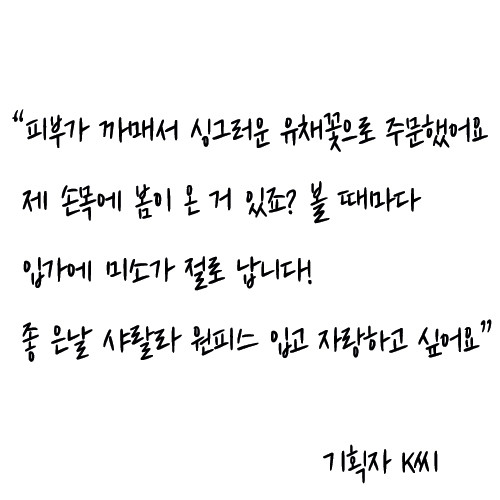 “피부가 까매서 싱그러운 유채꽃으로 주문했어요
제 손목에 봄이 온 거 있죠? 볼 때마다
입가에 미소가 절로 납니다!
좋 은날 샤랄라 원피스 입고 자랑하고 싶어요”
기획자 K씨